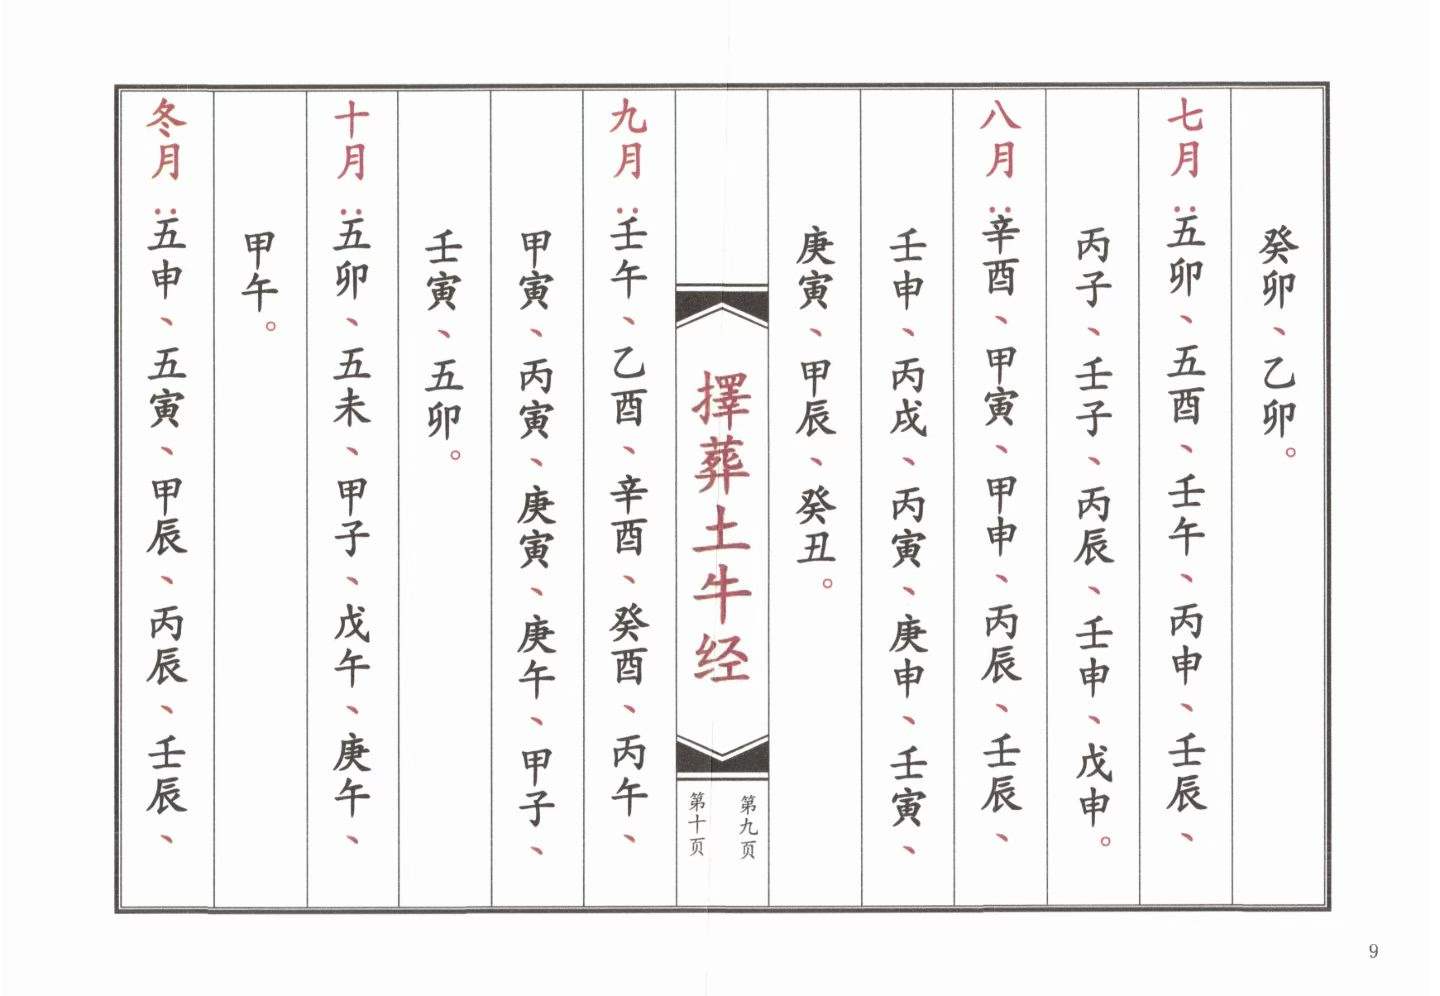 癸卯、乙卯。
七月：五卯、五酉、壬午、丙申、壬辰、
丙子、壬子、丙辰、壬申、戊申。
八月：辛酉、甲寅、甲申、丙辰、壬辰、
壬申、丙戌、丙寅、庚申、壬寅、
庚寅、甲辰、癸丑。
擇葬土牛经
第九页
第十页
九月：壬午、乙酉、辛酉、癸酉、丙午、
甲寅、丙寅、庚寅、庚午、甲子、
壬寅、五卯。
十月：五卯、五未、甲子、戊午、庚午、
甲午。
冬月：五申、五寅、甲辰、丙辰、壬辰、
9